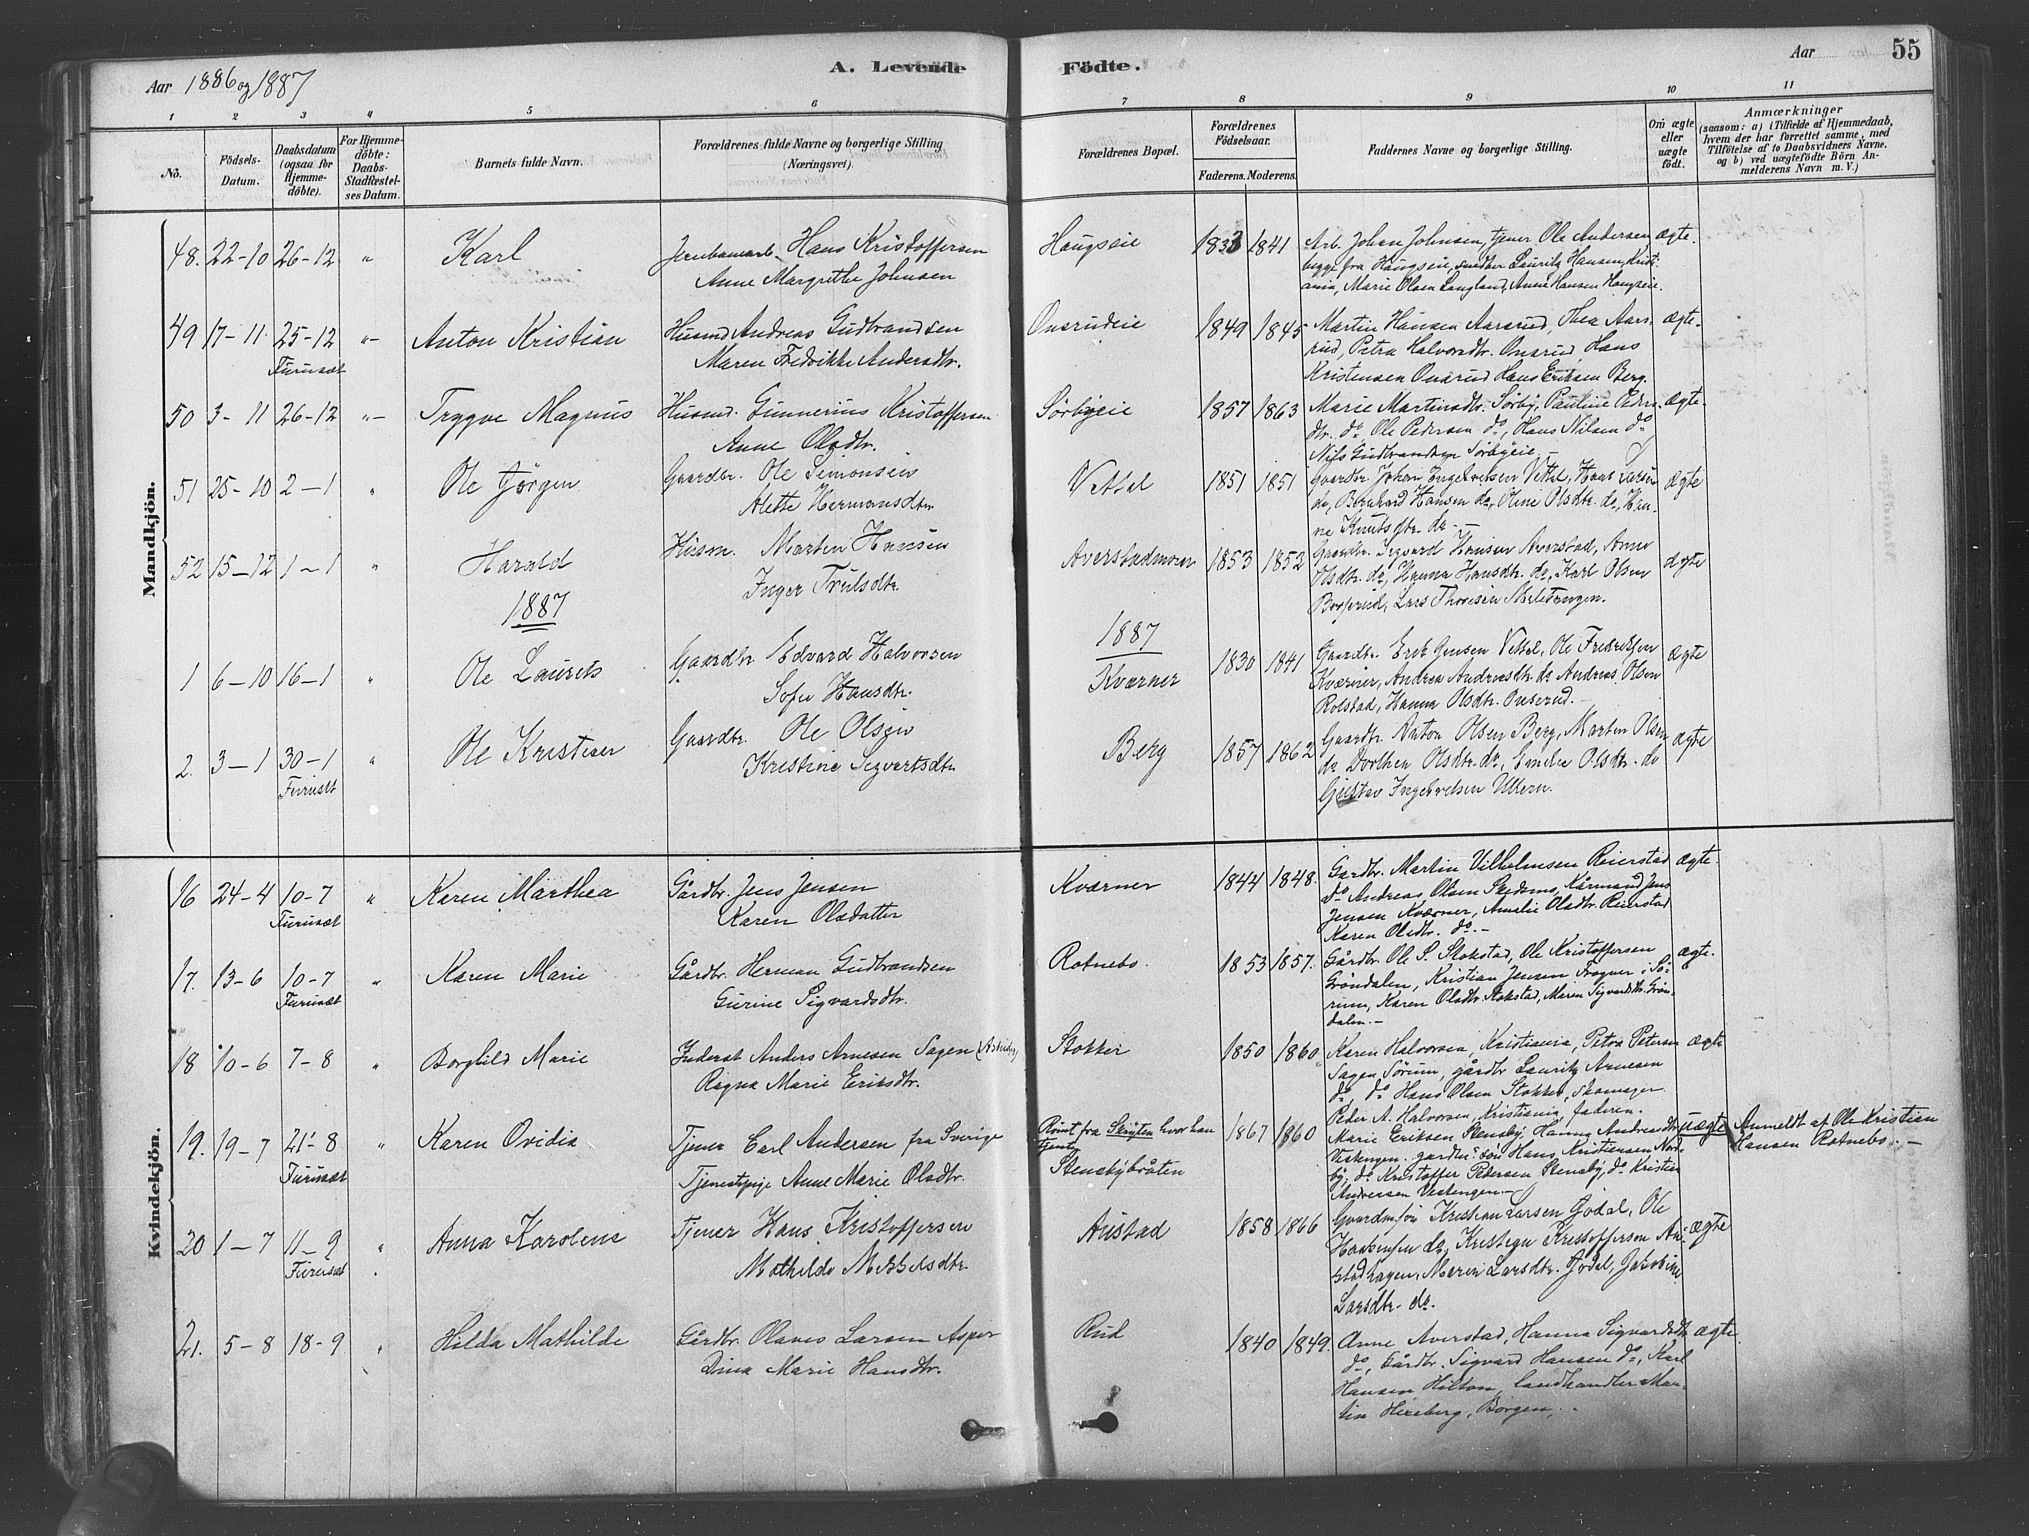 Aar 1886 og 1887
A. Levende Födte.
Aar 55
1 2 3 4 5 6 7 8 9 10 11
No.
Födsels-Datum.
Daabsdatum (ogsaa for Hjemme-döbte).
For Hjemme-döbte: Daabs-Stadfæstel-ses Datum.
Barnets fulde Navn.
Forældrenes fulde Navne og borgerlige Stilling (Næringsvei).
Forældrenes Bopæl.
Forældrenes Födselsaar.
Faderens. Moderens.
Faddernes Navne og borgerlige Stilling.
Om ægte eller uægte födt.
Anmærkninger
(saasom: a) i Tilfælde af Hjemmedaab, hvem der har forrettet samme, med Tilföielse af to Daabsvidners Navne, og b) ved uægtefödte Börn Anmelderens Navn m. V.)
Mandkjön.
48. 22-10 26-12 " Karl
Jernbanearb. Hans Kristoffersen
Anne Margrethe Johnsen
Haugseie 1833 1841
Arb. Johan Johnsen, tjener Ole Andersen
begge fra Haugseie, snedker Lauritz Hansen, Kristi-
ania, Marie Olsen Langland, Anne Hansen Haugseie.
ægte.
49 17-11 25-12 Furuset "- Anton Kristian
Husmd Andreas Gudbrandsen
Maren Fredrikke Andersdtr.
Onsrudeie 1849 1845
Martin Hansen Aarsrud, Thea Aars-
rud, Petra Halvorsdtr. Onsrud, Hans
Kristensen Onsrud Hans Eriksen Berg.
ægte.
50 3-11 26-12 "- Trygve Magnus
Husmd. Gunnerius Kristoffersen
Anne Olsdtr.
Sørbyeie 1857 1863
Marie Martinsdtr. Sørby, Pauline Peders-
dtr. do, Ole Pedersen do, Hans Nilsen do
Nils Gudbrandsen Sørbyeie
ægte.
51 25-10 2-1 " Ole Jörgen
Gaardbr. Ole Simonsen
Alette Hermansdtr
Vettal 1851 1851
Gaardbr. Johan Ingelvelsen Vettal, Hans Larsen
do, Bernhard Hansen do, Oline Olsdtr. do, Han-
ne Knutsdtr. do.-
ægte
52 15-12 1-1 " Harald
Husm. Martin Hansen
Inger Trulsdtr.
Averstadmoen 1853 1852
Gaardbr. Sigvard Hansen Averstad, Anne
Olsdtr. do, Hanna Hansdtr. do, Karl Olsen
Lars Thoresen
ægte
1887
1887
1 6-10 16-1 " Ole Laurits
Gaardbr Edvard Halvorsen
Sofie Hansdtr.
Kværner 1830 1841
Gaardbr. Erik Jensen Vettal, Ole Fredriksen
Kværner, Andrea Andreasdtr do Andreas Olsen
Rolstad, Hanna Olsdtr. Onserud.-
ægte
2. 3-1 30-1 Furuset " Ole Kristian
Gaardbr. Ole Olsen
Kristine Sigvertsdtr
Berg 1857 1862
Gaardbr. Anton Olsen Berg, Martin Olsen
do Dorthea Olsdtr. do, Emilie Olsdtr. do
Gustav Ingelvelsen Ullern.
ægte
Kvindekjön.
16 24-4 10-7 Furuset " Karen Marthea
Gårdbr. Jens Jensen
Karen Olsdatter
Kværner 1844 1848.
Gardbr. Martin Vilhelmsen Reierstad
do Andreas Olsen Skedsmo, Kårmand Jens
Jensen Kværner, Amalie Olsdtr. Reierstad
Karen Olsdtr. do.-
ægte.
17. 13-6 10-7 Furuset " Karen Marie
Gårdbr. Herman Gudbrandsen
Gurine Sigvardsdtr.
Rotnebo. 1853 1857.
Gårdbr. Ole P. Stokstad, Ole Kristoffersen
Gröndalen, Kristian Jensen Frogner i Sö-
rum, Karen Olsdtr. Stokstad, Maren Sigvardsdtr. Grön-
dalen.-
ægte.
18 10-6 7-8 " Borghild Marie
Inderst Anders Arnesen Sagen
Ragna Marie Eriksdtr.
Stokker 1850 1860
Karen Halvorsen, Kristiania, Petra Petersen
Sagen Sörum, gårdbr Lauritz Arnesen
do, do Hans Olsen Stokker, skomager
Peder A. Halvorsen, Kristiania, faderen.
ægte
19. 19-7 21-8 Furuset " Karen Ovidia
Tjener Carl Andersen fra Sverige
Tjenestepige Anne Marie Olsdtr.
fra Skrijten hvor han tjente
Stensbybråten
1867 1860
Marie Eriksen Stensby, Hanna Andreasdtr
Vestengen. gårdbr. sön Hans Kristiansen Nor-
by, do Kristoffer Pedersen Stensby, do Kristian
Andreasen Vestengen.-
uægte
Anmeldt af Ole Kristian
Hansen Rotnebo.-
20 1-7 11-9 Furuset " Anna Karoline
Tjener Hans Kristoffersen
Mathilde Mikkelsdtr.
Austad 1858 1866
Gaardm. sön Kristian Larsen Jödal, Ole
Haakensen do, Kristian Kristofferson Au-
stadhagen, Maren Larsdtr. Jödal, Jakobine
Larsdtr. do.
ægte
21. 5-8 18-9 " Hilda Mathilde
Gårdbr. Olaves Larsen Asper
Dina Marie Hansdtr.
Rud 1840 1849.
Anne Averstad, Hanna Sigvardsdtr
do, Gårdbr. Sigvard Hansen do, Karl
Hansen Hilton, landhandler Mar-
tin Hexeberg, Borgen.
ægte.